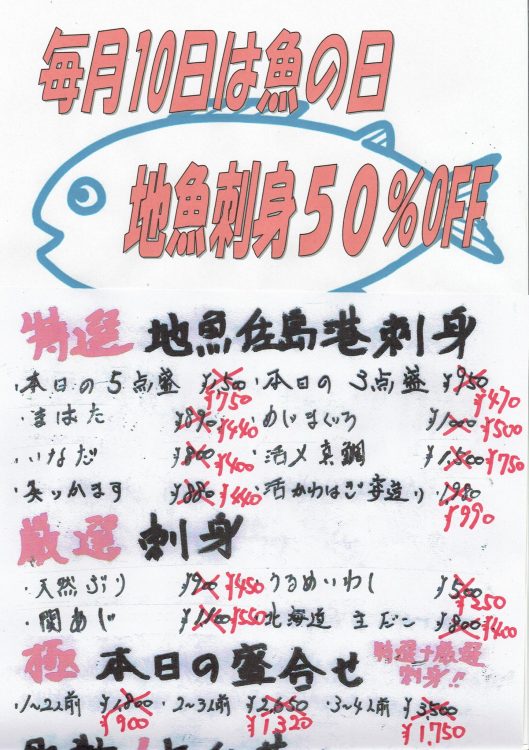 毎月10日は魚の日
地魚刺身50%OFF
特選 地魚佐島港刺身
・本日の5点盛 ¥1,500 ¥750 ・本日の 3点盛 ¥950 ¥470
・まはた ¥890 ¥440 ・めじまぐろ ¥1,000 ¥500
・いなだ ¥800 ¥400 ・活〆真鯛 ¥1,500 ¥750
・炙りかます ¥880 ¥440 ・活かわはぎ姿造り 1,980 ¥990
厳選 刺身
・天然ぶり ¥900 ¥450 ・うるめいわし ¥500 ¥250
・関あじ ¥1,100 ¥550 北海道 生だこ ¥800 ¥400
極 本日の盛合せ 特選+厳選
刺身!!
・1~2人前 ¥1,800 ¥900 ・2~3人前 ¥2,650 ¥1,320 ・3~4人前 ¥3,500 ¥1,750